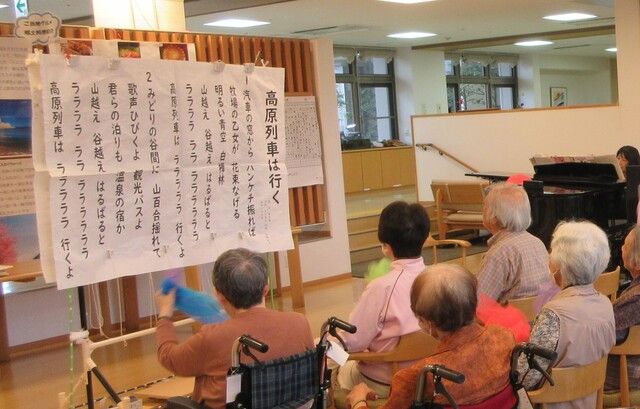 高原列車は行く
1 汽車の窓から ハンケチ振れば
牧場の乙女が 花束なげる
明るい青空 白樺林
山越え 谷越え はるばると
ララララ ララ ララララララ
高原列車は ラララララ 行くよ
2 みどりの谷間に 山百合揺れて
歌声ひびくよ 観光バスよ
君らの泊りも 温泉の宿か
山越え 谷越え はるばると
ララララ ララ ララララララ
高原列車は ラララララ 行くよ